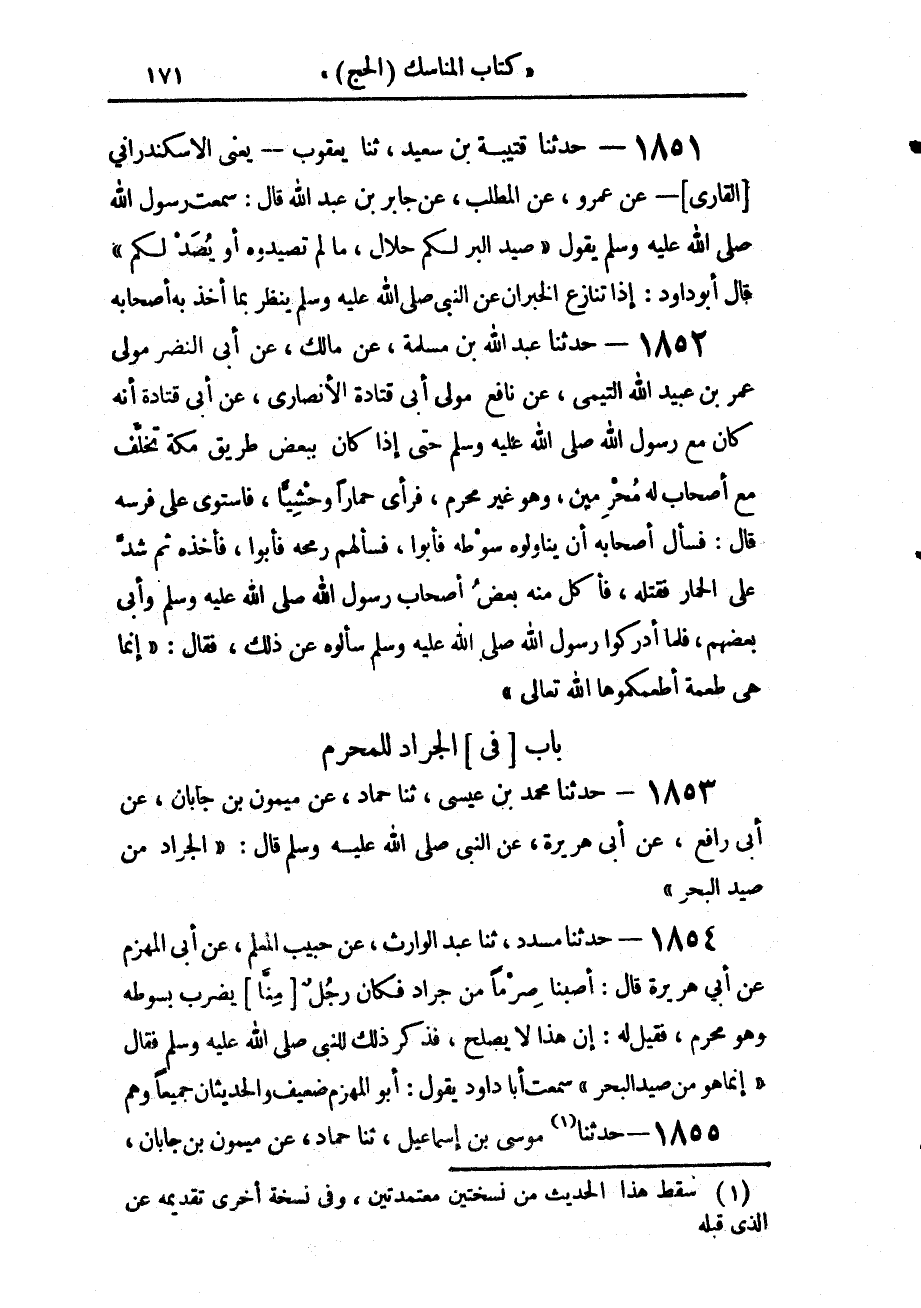 « كتاب المناسك (الحج) » ١٧١
١٨٥١ — حدثنا قتيبة بن سعيد ، ثنا يعقوب -- يعنى الاسكندراني
[القارى] — عن عمرو ، عن المطلب ، عن جابر بن عبد الله قال : سمعت رسول الله
صلى الله عليه وسلم يقول « صيد البر لكم حلال ، ما لم تصيدوه أو يُصَدْ لكم »
قال أبو داود : إذا تنازع الخبران عن النبى صلى الله عليه وسلم ينظر بما أخذ به أصحابه
١٨٥٢ — حدثنا عبد الله بن مسلمة ، عن مالك ، عن أبى النضر مولى
عمر بن عبيد الله التيمى ، عن نافع مولى أبى قتادة الأنصارى ، عن أبى قتادة أنه
كان مع رسول الله صلى الله عليه وسلم حتى إذا كان ببعض طريق مكة تخلَّف
مع أصحاب له مُحْرِمين ، وهو غير محرم ، فرأى حماراً وحْشِيًّا ، فاستوى على فرسه
قال : فسأل أصحابه أن يناولوه سوْطه فأبوا ، فسألهم رمحه فأبوا ، فأخذه ثم شدَّ
على الحمار فقتله ، فأكل منه بعضُ أصحاب رسول الله صلى الله عليه وسلم وأبى
بعضهم ، فلما أدركوا رسول الله صلى الله عليه وسلم سألوه عن ذلك ، فقال : « إنما
هى طعمة أطعمكموها الله تعالى »
باب [ فى ] الجراد للمحرم
١٨٥٣ — حدثنا محمد بن عيسى ، ثنا حماد ، عن ميمون بن جابان ، عن
أبى رافع ، عن أبى هريرة ، عن النبى صلى الله عليه وسلم قال : « الجراد من
صيد البحر »
١٨٥٤ — حدثنا مسدد ، ثنا عبد الوارث ، عن حبيب المعلم ، عن أبى المهزم
عن أبي هريرة قال : أصبنا صِرْماً من جراد فكان رجُلٌ [ مِنَّا ] يضرب بسوطه
وهو محرم ، فقيل له : إن هذا لا يصلح ، فذكر ذلك للنبى صلى الله عليه وسلم فقال
« إنما هو من صيد البحر » سمعت أبا داود يقول : أبو المهزم ضعيف والحديثان جميعاً وهم
١٨٥٥ — حدثنا (١) موسى بن إسماعيل ، ثنا حماد ، عن ميمون بن جابان ،
(١) سقط هذا الحديث من نسختين معتمدتين ، وفى نسخة أخرى تقديمه عن
الذى قبله